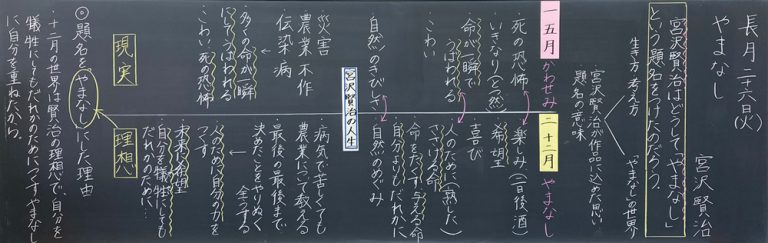 長月二十六日(火)
やまなし
宮沢賢治
宮沢賢治はどうして「やまなし」
という題名をつけたのだろう。
生き方 考え方
「やまなし」の世界
宮沢賢治が作品に込めた思い
題名の意味
一 五月 かわせみ
二 十二月 やまなし
死の恐怖
いきなり(突然)
命が一瞬で
うばわれる
こわい
自然のきびしさ
楽しみ(二日後 酒)
希望
喜び
人のために(熟した)
ささげる命
命をたくす・与える命
自分よりもだれかに
自然のめぐみ
宮沢賢治の人生
災害
農業不作
伝染病
多くの命が一瞬
にしてうばわれる
こわい 死の恐怖
病気で苦しくても
農業について教える
最後の最後まで
決めたことをやりぬく
全うする
人のために自分の力を
つくす
未来に希望
自分を犠牲にしても
だれかのために…
現実
理想
◎題名を「やまなし」にした理由
・十二月の世界は賢治の理想で、自分を
犠牲にしてもだれかのためにつくすやまなし
に自分を重ねたから。